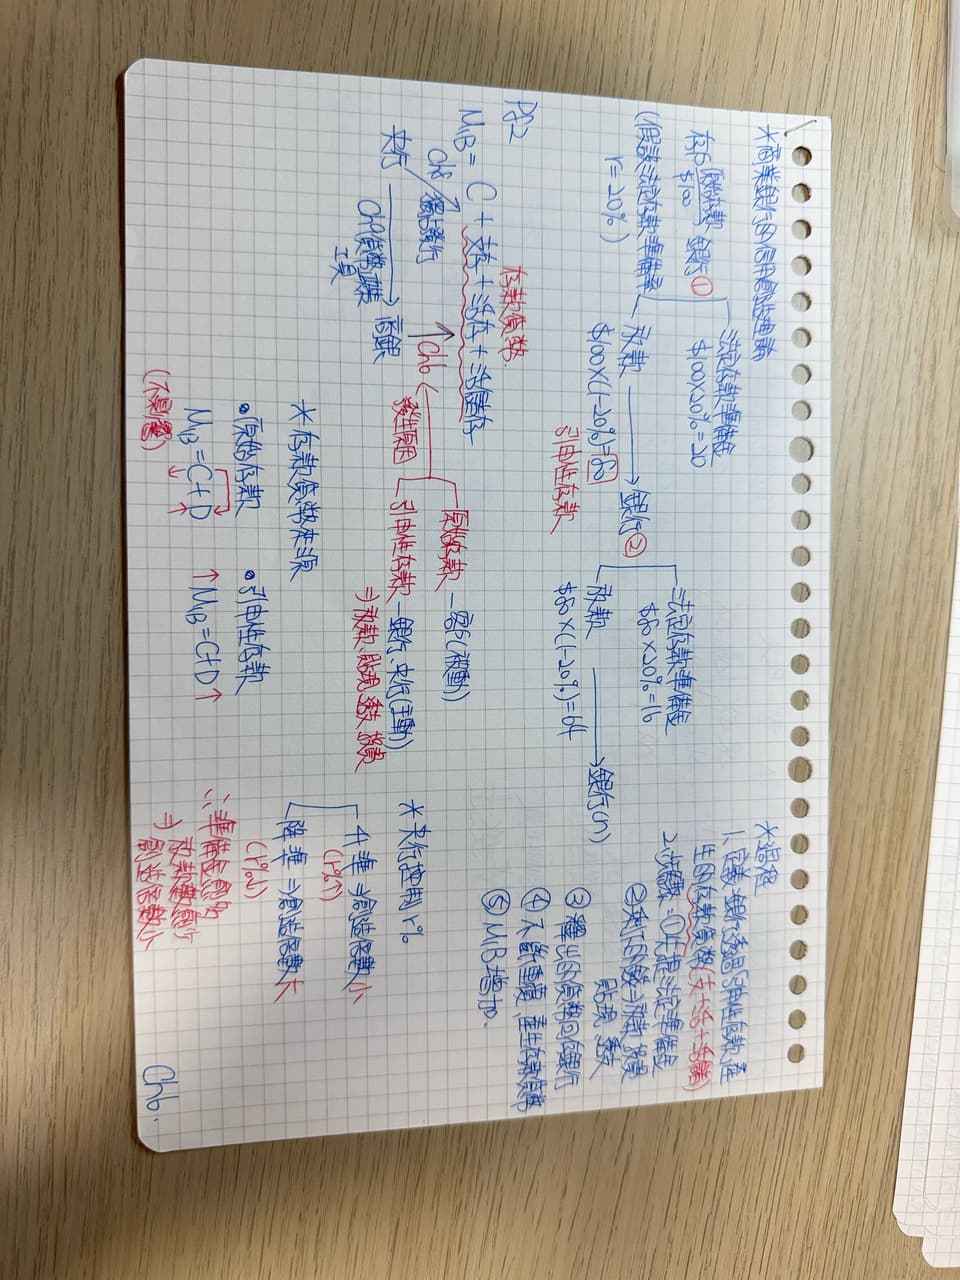 *商業銀行的信用創造理論
存戶 原始存款 $100 銀行①
法定存款準備金
$100×20%=20
(假設法定存款準備率
r=20%)
放款
$100×(1-20%)=80
引申性存款
銀行②
法定存款準備金
$80×20%=16
放款
$80×(1-20%)=64
銀行(n)
*過程
1.定義:銀行透過引申性存款產
生的存款貨幣(支+活+活儲)
2.步驟:①先提法定準備金
②剩下的錢⇒放款、投資
貼現、透支
③釋出的貨幣回存銀行
④不斷重複,產生存款貨幣
⑤M1B增加.
Pg2
存款貨幣.
M1B = C + 支存 + 活存 + 活儲存
Ch8 獨占發行
Ch6
央行
商銀
Ch9貨幣政策
工具
發生原因
原始存款 — 客戶(被動)
引申性存款 — 銀行、央行(主動)
⇒放款、貼現、透支、投資
*存款貨幣來源
•原始存款
M1B=C+D
↓ ↑
(不影響)
•引申性存款
↑M1B=C+D↑
*央行控制r%
升準⇒創造乘數小
(r%↑)
降準⇒創造乘數大
(r%↓)
∴準備金愈多
放款數愈少
⇒創造乘數小
Ch6.